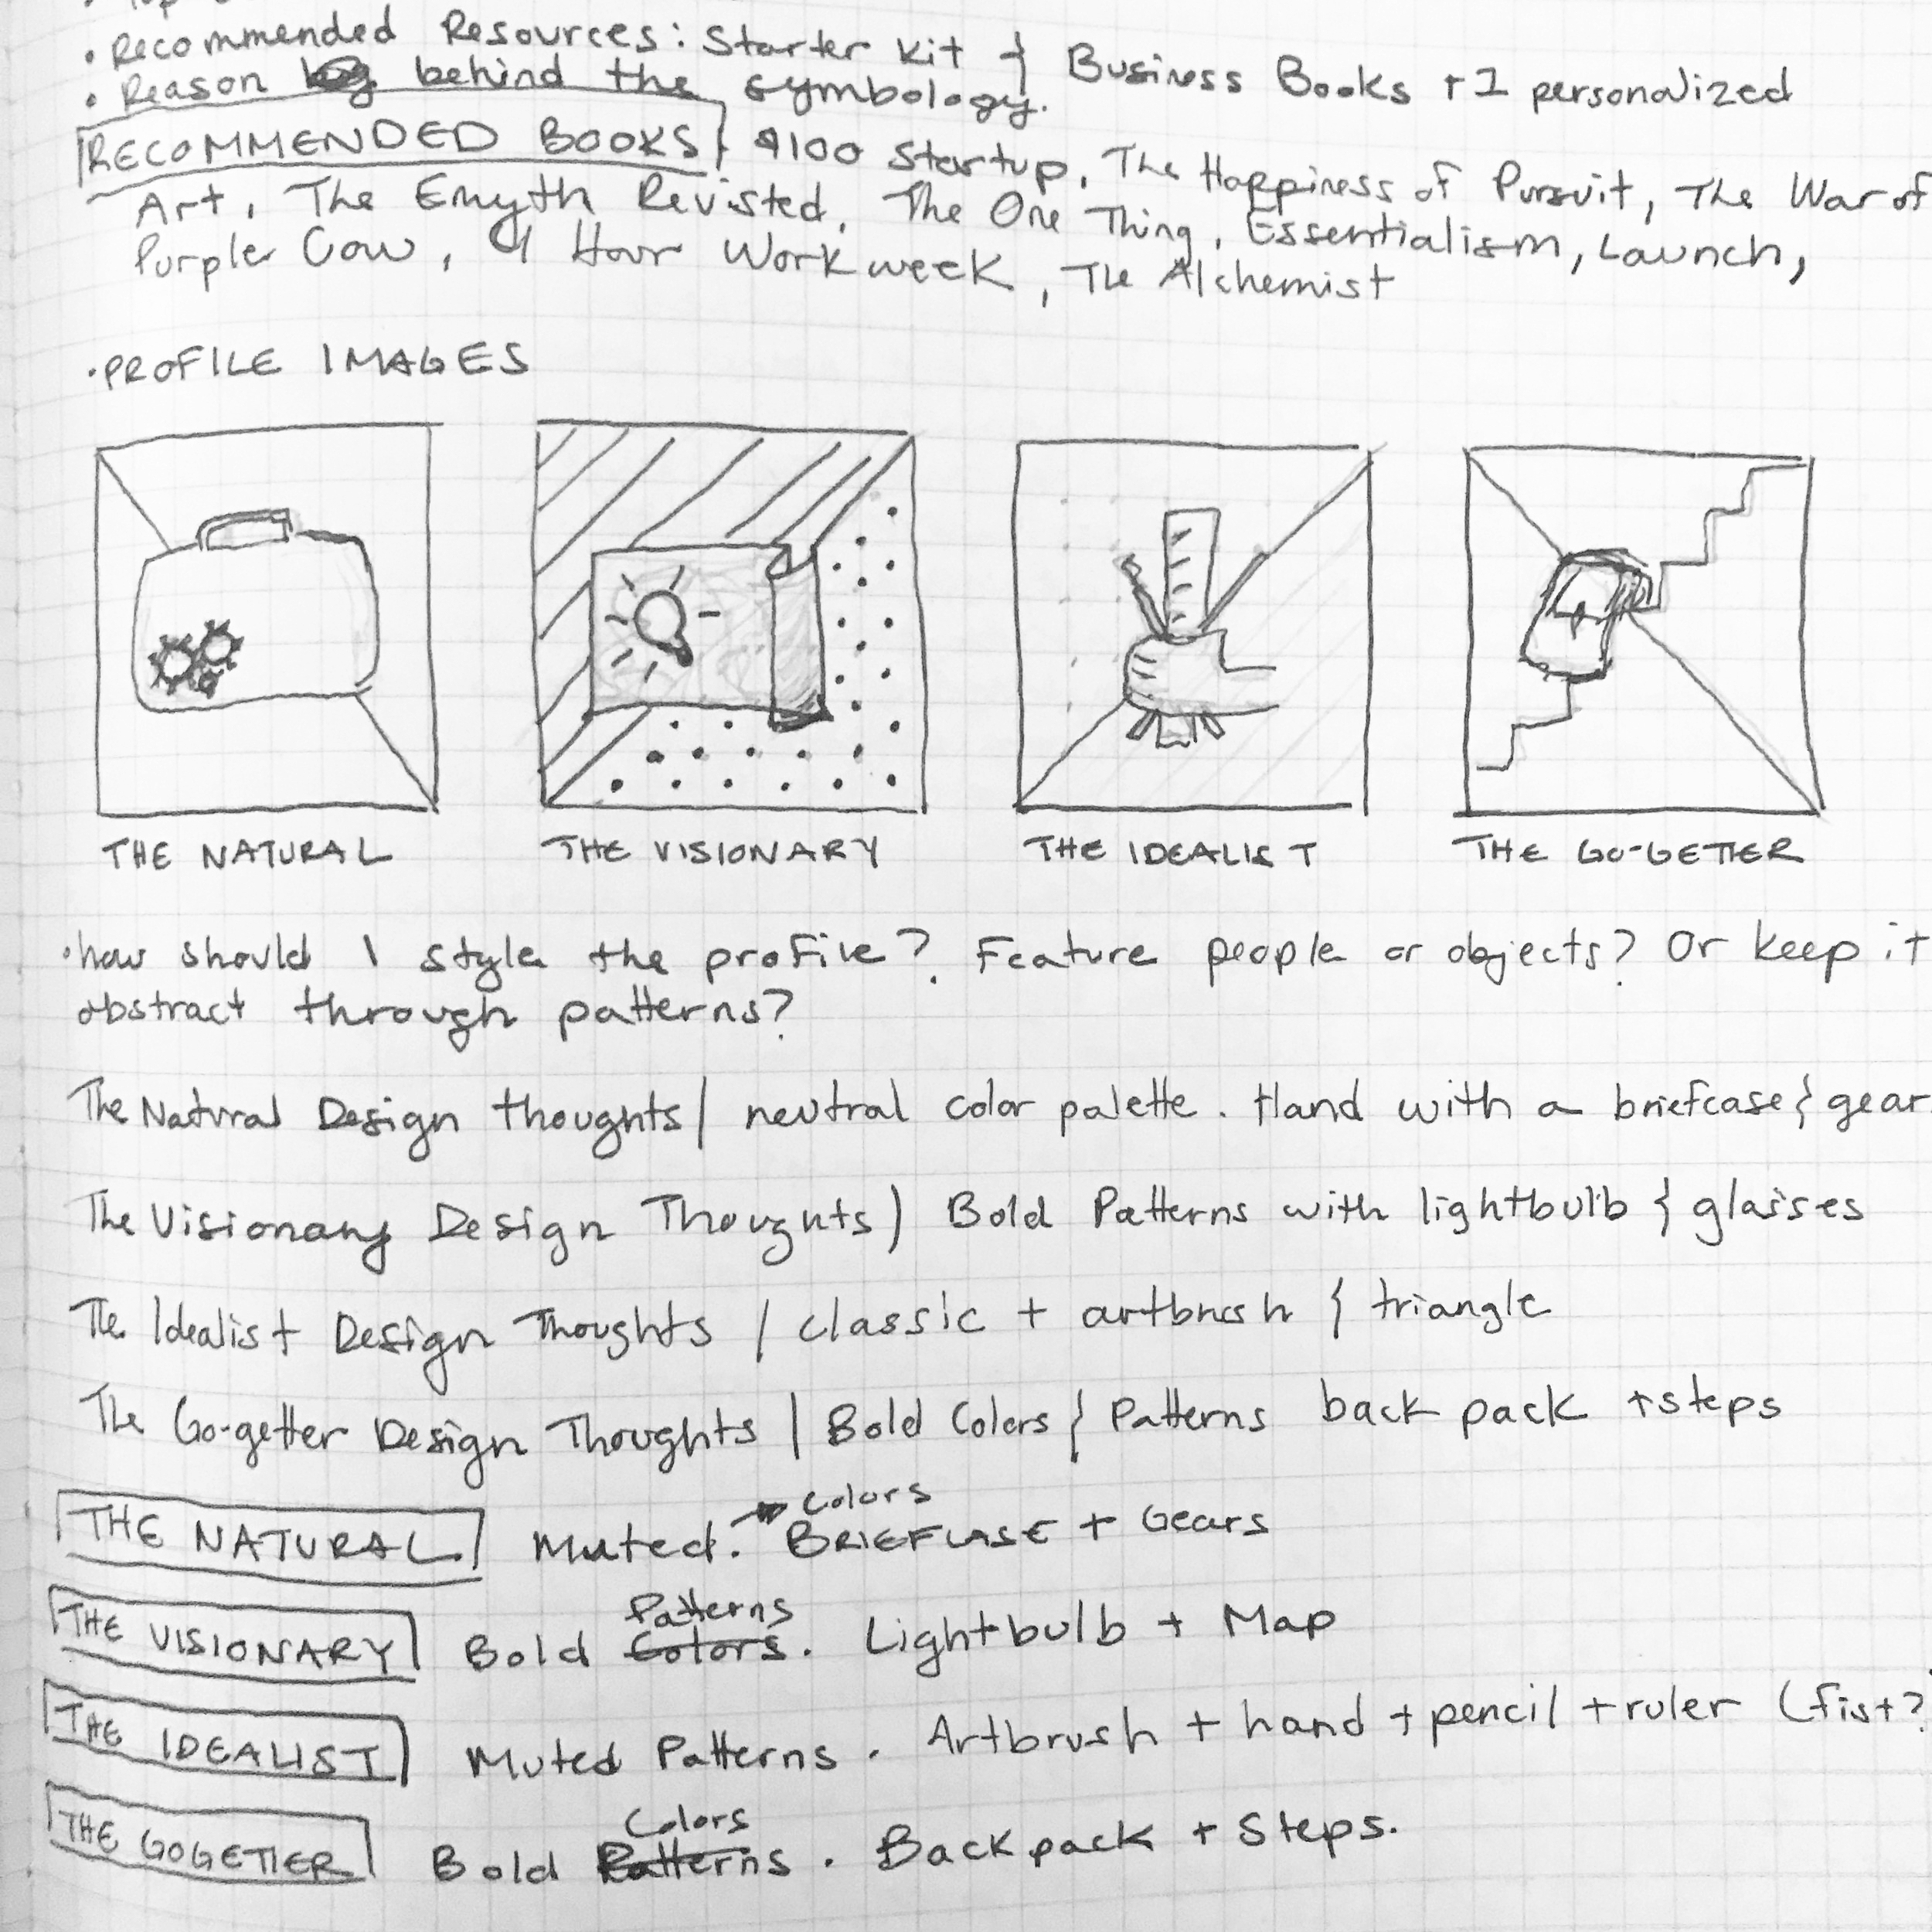 • Top
• Recommended Resources: Starter Kit & Business Books + 1 personalized
• Reason behind the symbology.
RECOMMENDED BOOKS $100 Startup, The Happiness of Pursuit, The War of
Art, The Emyth Revisted, The One Thing, Essentialism, Launch,
Purple Cow, 4 Hour Workweek, The Alchemist
• PROFILE IMAGES
THE NATURAL THE VISIONARY THE IDEALIST THE GO-GETTER
• how should I style the profile? Feature people or objects? Or keep it
abstract through patterns?
The Natural Design thoughts / neutral color palette. Hand with a briefcase & gear
The Visionary Design Thoughts) Bold Patterns with lightbulb & glasses
The Idealist Design Thoughts / classic + artbrush & triangle
The Go-getter Design Thoughts | Bold Colors & Patterns back pack + steps
Colors
THE NATURAL Muted. → BRIEFCASE + Gears
Patterns
THE VISIONARY Bold Colors. Lightbulb + Map
THE IDEALIST Muted Patterns. Artbrush + hand + pencil + ruler (fist?
Colors
THE GOGETTER Bold Patterns. Backpack + Steps.